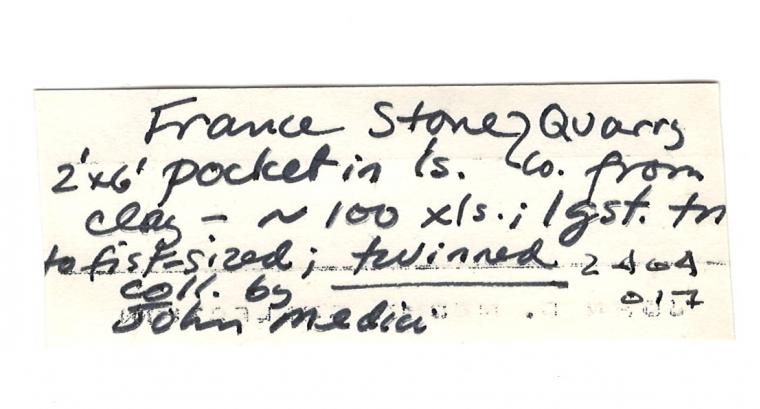 France Stone Quarry
2'x6' pocket in ls. Co. from
clay - ~ 100 xls.; lgst. tn
to fist-sized; twinned
coll. by
John Medici
017